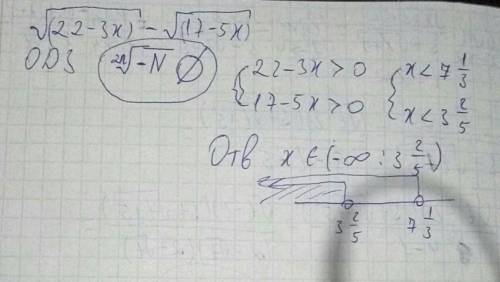 √(22-3x) - √(17-5x)
ОДЗ ²ⁿ√-N ∅ { 22-3x>0 { x<7 1/3
17-5x>0 x<3 2/5
Отв x∈(-∞; 3 2/5)
3 2/5 7 1/3